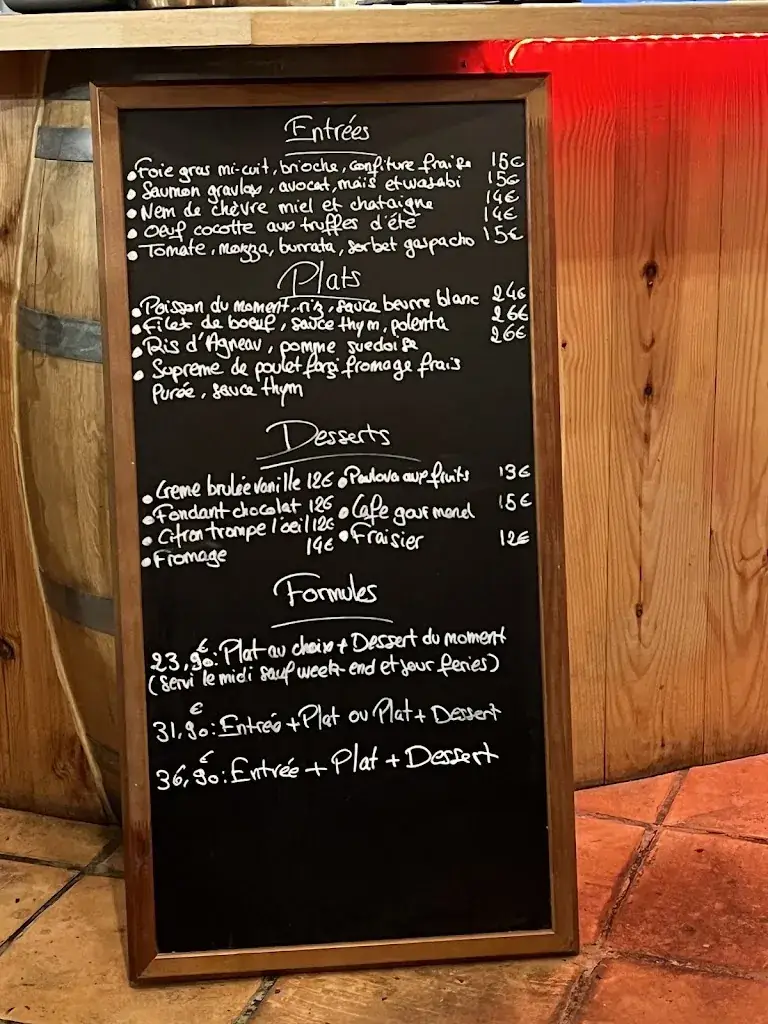 Entrées
• Foie gras mi-cuit, brioche, confiture fraise 15€
• Saumon gravlax, avocat, maïs et wasabi 15€
• Nem de chèvre miel et chataigne 14€
• Oeuf cocotte aux truffes d'été 14€
• Tomate, mozza, burrata, sorbet gaspacho 15€
Plats
• Poisson du moment, riz, sauce beurre blanc 24€
• Filet de boeuf, sauce thym, polenta 26€
• Ris d'Agneau, pomme suedoise 26€
• Supreme de poulet farsi fromage frais
Purée, sauce thym
Desserts
• Creme brulée vanille 12€ • Pavlova aux fruits 13€
• Fondant chocolat 12€ • Cafe gourmand 15€
• Citron trompe l'oeil 12€ • Fraisier 12€
• Fromage 14€
Formules
23,90€: Plat au choix + Dessert du moment
(Servi le midi sauf week-end et jour feries)
31,90€: Entrée + Plat ou Plat + Dessert
36,90€: Entrée + Plat + Dessert